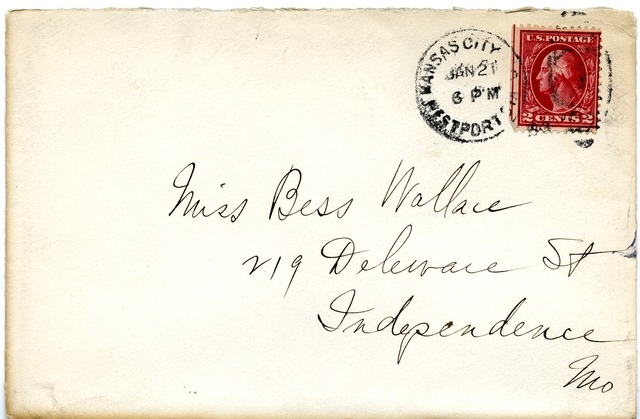 KANSAS CITY
JAN 21
6 PM
WESTPORT
U.S. POSTAGE
2 CENTS 2
Miss Bess Wallace
219 Deleware St
Independence
Mo